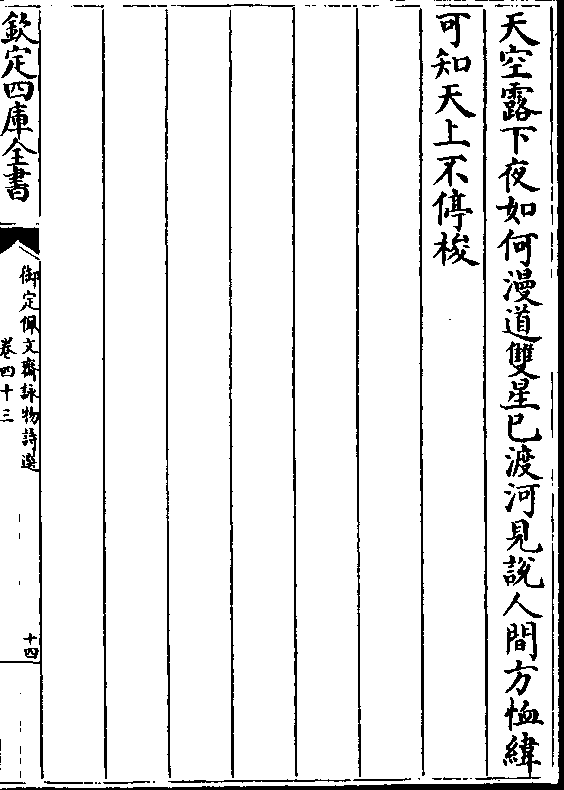 天空露下夜如何漫道雙星已渡河見說人間方恤緯
可知天上不停梭
欽定四庫全書
御定佩文齋詠物詩選
卷四十三
十四